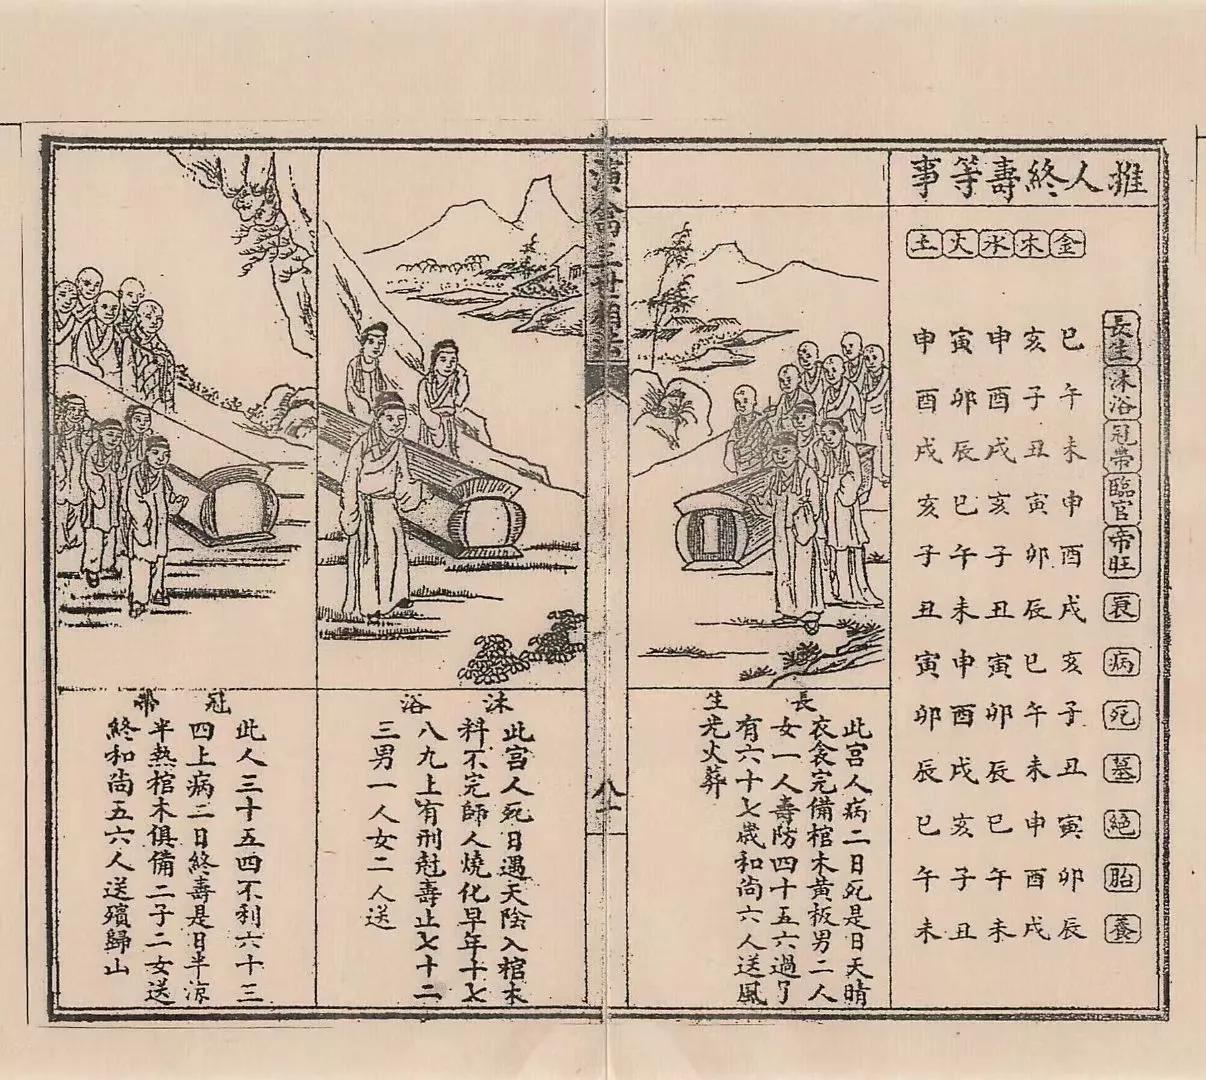 推人終壽等事
長生 沐浴 冠帶 臨官 帝旺 衰 病 死 墓 絕 胎 養
金 巳午未申酉戌亥子丑寅卯辰
木 亥子丑寅卯辰巳午未申酉戌
水 申酉戌亥子丑寅卯辰巳午未
火 寅卯辰巳午未申酉戌亥子丑
土 申酉戌亥子丑寅卯辰巳午未
長生
此宮人病二日死是日天晴
衣衾完備棺木黄板男二人
女一人壽防四十五六過了
有六十七歲和尚六人送風
光火葬
演禽三世相法
沐浴
此宮人死日遇天陰入棺木
料不完師人燒化早年十七
八九上有刑尅壽止七十二
三男一人女二人送
冠帶
此人三十五四不利六十三
四上病二日終壽是日半涼
半熱棺木俱備二子二女送
終和尚五六人送殯歸山